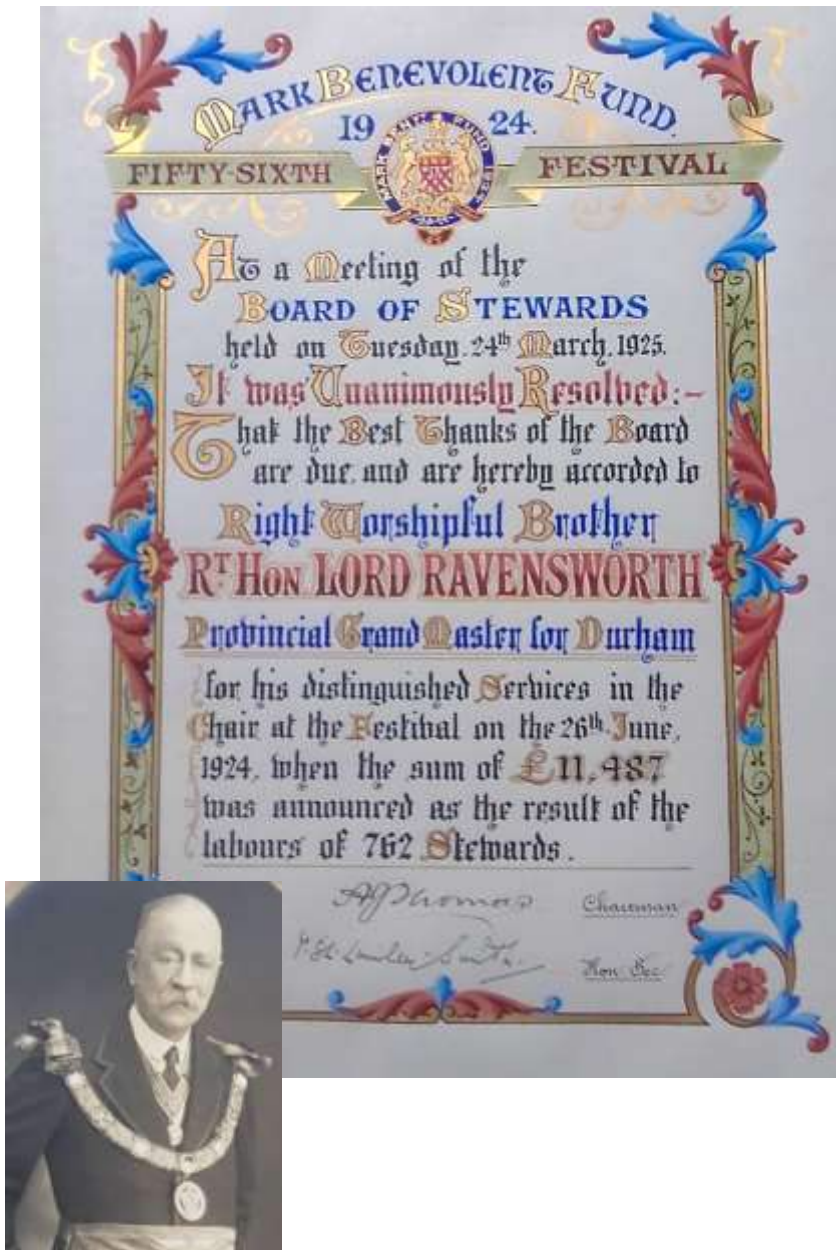 MARK BENEVOLENT FUND.
1924.
MARK BENVT. FUND 1924
FIFTY-SIXTH FESTIVAL
At a Meeting of the
BOARD OF STEWARDS
held on Tuesday. 24th March, 1925.
It was Unanimously Resolved:-
That the Best Thanks of the Board
are due, and are hereby accorded to
Right Worshipful Brother
RT HON. LORD RAVENSWORTH
Provincial Grand Master for Durham
for his distinguished Services in the
Chair at the Festival on the 26th June,
1924, when the sum of £11,487
was announced as the result of the
labours of 762 Stewards.
Chairman
Hon Sec